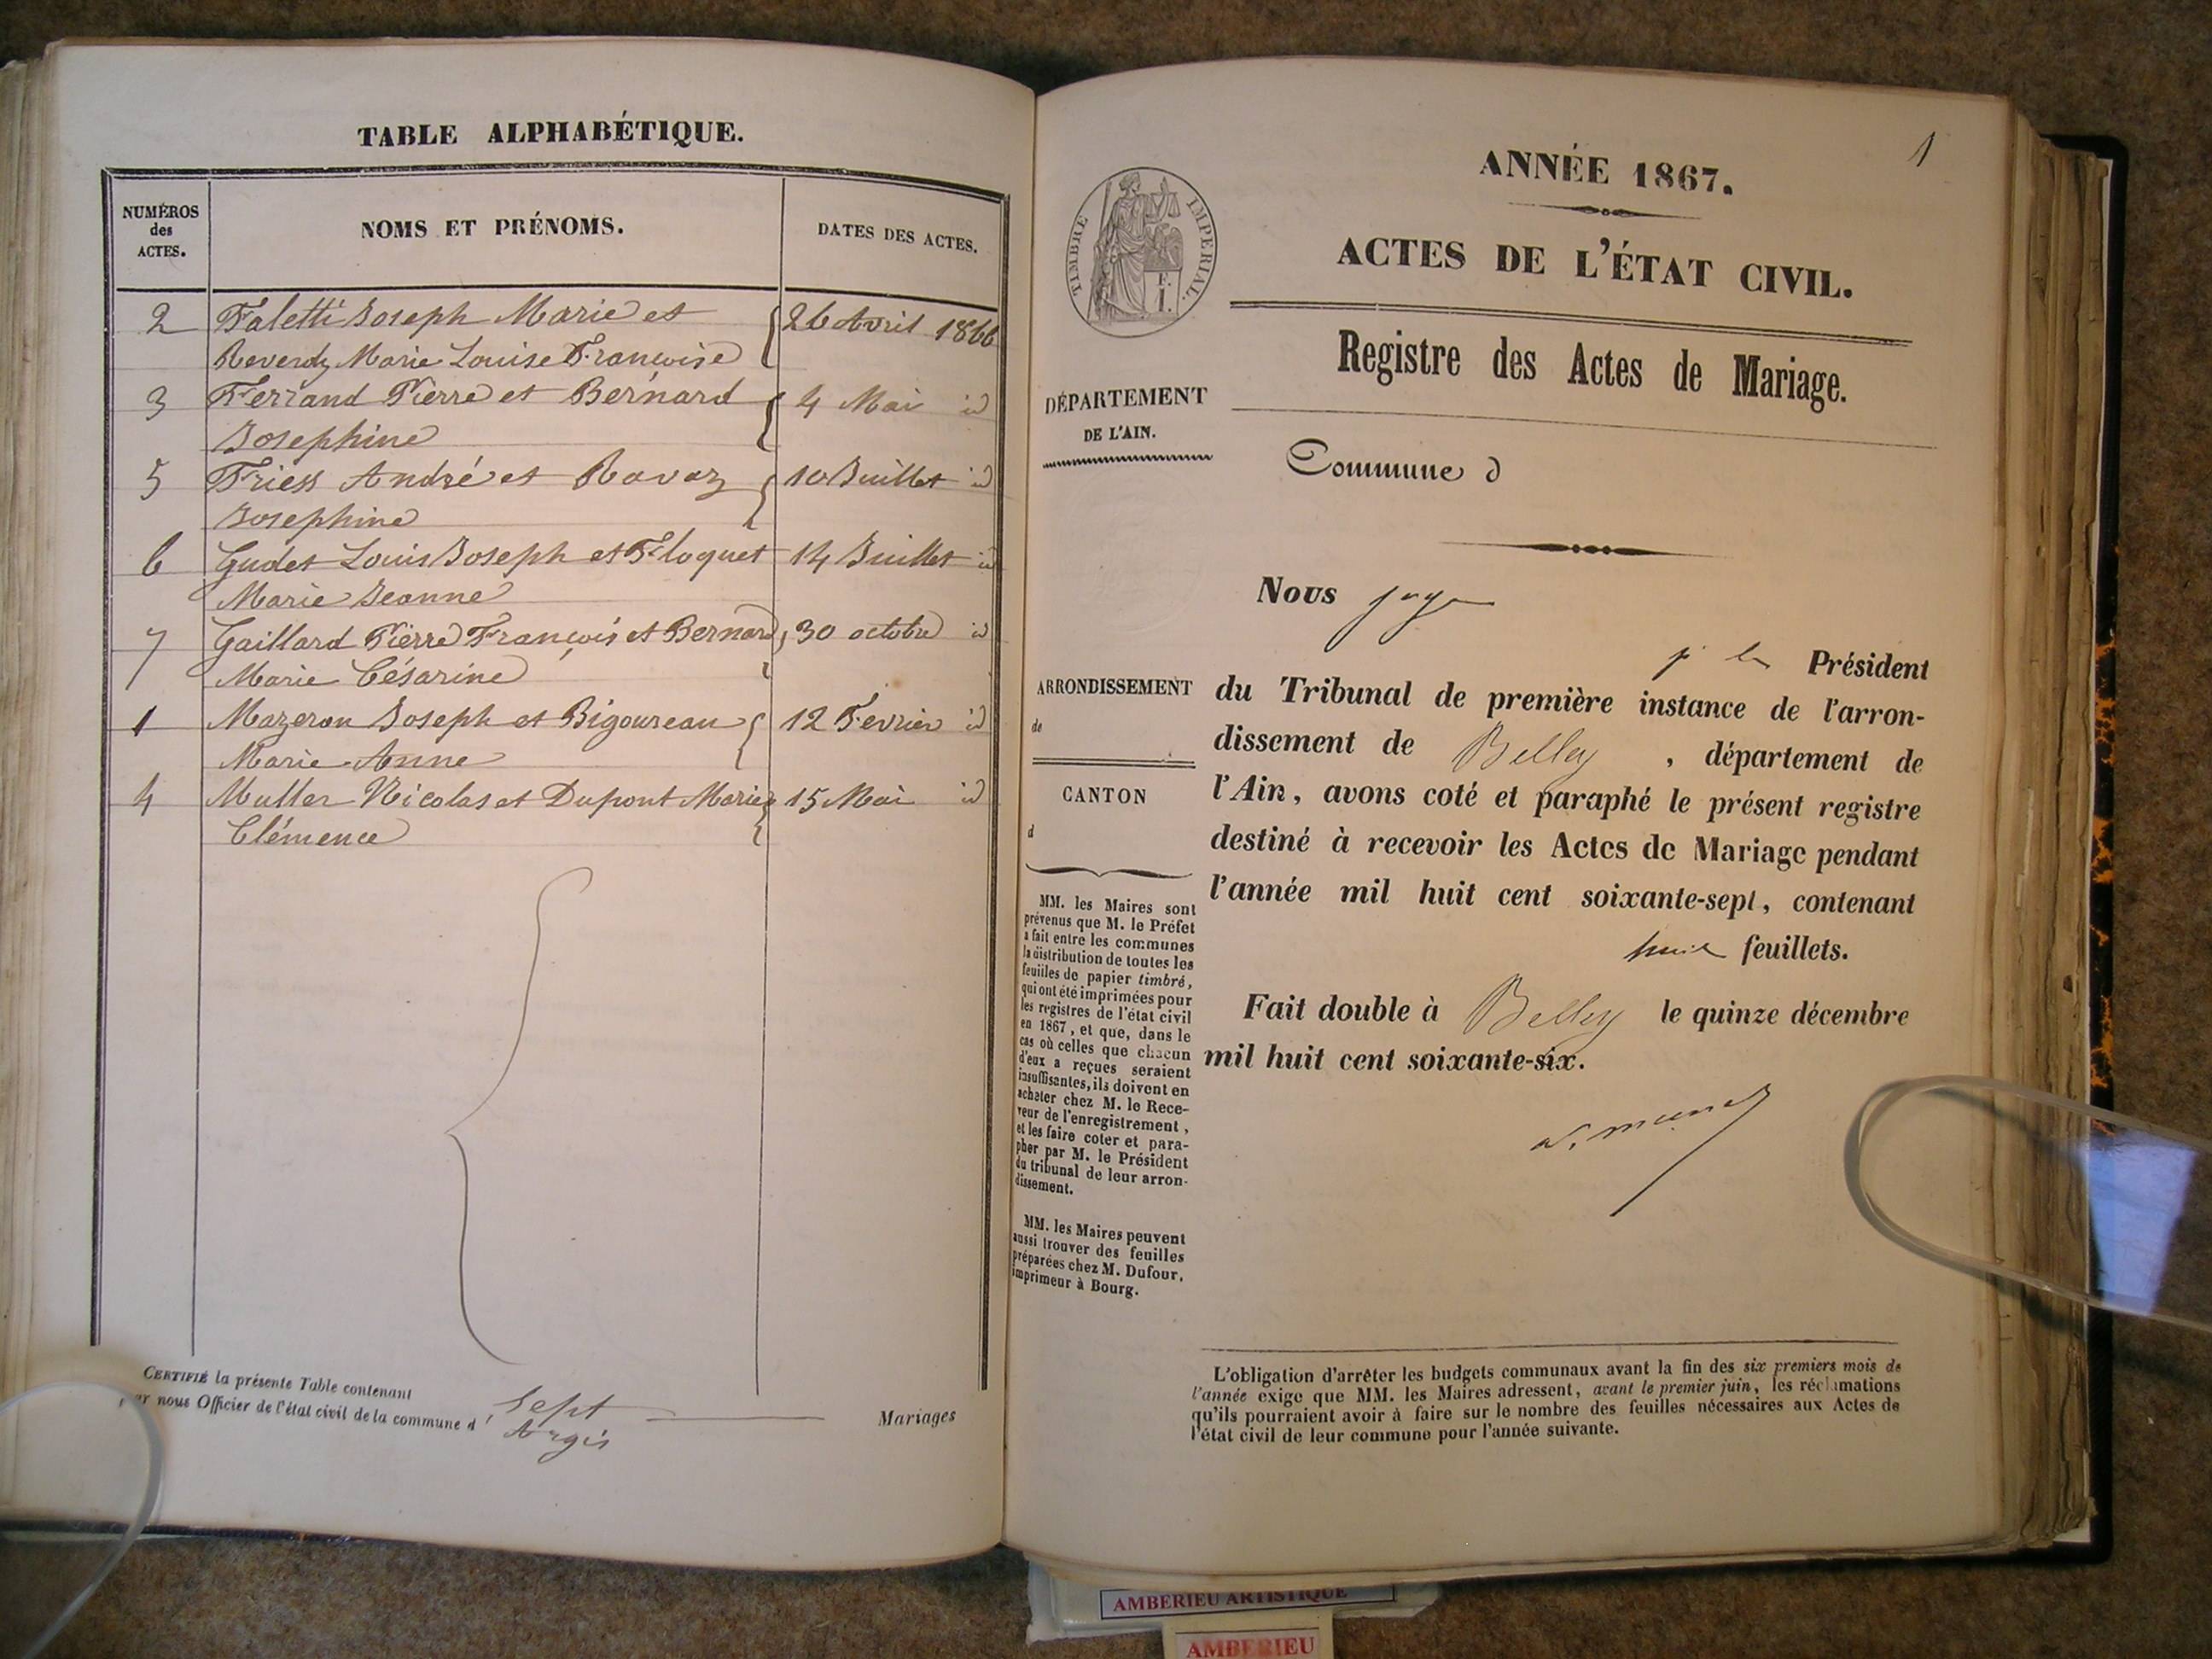 TABLE ALPHABÉTIQUE.
NUMÉROS
des
ACTES.
NOMS ET PRÉNOMS.
DATES DES ACTES.
2 Faletti Joseph Marie et 26 Avril 1866
Reverdy Marie Louise Françoise
3 Ferrand Pierre et Bernard 4 Mai id
Josephine
5 Friess André et Ravaz 10 Juillet id
Josephine
6 Gudet Louis Joseph et Floquet 14 Juillet id
Marie Jeanne
7 Gaillard Pierre François et Bernard 30 octobre id
Marie Césarine
1 Mazeron Joseph et Bigoureau 12 Fevrier id
Marie Anne
4 Muller Nicolas et Dupont Marie 15 Mai id
Clémence
CERTIFIÉ la présente Table contenant Sept Mariages
par nous Officier de l'état civil de la commune d'Argis
1
ANNÉE 1867.
TIMBRE IMPERIAL.
E.
I.
ACTES DE L'ÉTAT CIVIL.
Registre des Actes de Mariage.
DÉPARTEMENT
DE L'AIN.
Commune d
Nous juge
pr le Président
du Tribunal de première instance de l'arron-
dissement de Belley, département de
l'Ain, avons coté et paraphé le présent registre
destiné à recevoir les Actes de Mariage pendant
l'année mil huit cent soixante-sept, contenant
huit feuillets.
Fait double à Belley le quinze décembre
mil huit cent soixante-six.
ARRONDISSEMENT
de
CANTON
d
MM. les Maires sont
prévenus que M. le Préfet
a fait entre les communes
la distribution de toutes les
feuilles de papier timbré,
qui ont été imprimées pour
les registres de l'état civil
en 1867, et que, dans le
cas où celles que chacun
d'eux a reçues seraient
insuffisantes, ils doivent en
acheter chez M. le Rece-
veur de l'enregistrement,
et les faire coter et para-
pher par M. le Président
du tribunal de leur arron-
dissement.
MM. les Maires peuvent
aussi trouver des feuilles
préparées chez M. Dufour,
imprimeur à Bourg.
L'obligation d'arrêter les budgets communaux avant la fin des six premiers mois de
l'année exige que MM. les Maires adressent, avant le premier juin, les réclamations
qu'ils pourraient avoir à faire sur le nombre des feuilles nécessaires aux Actes de
l'état civil de leur commune pour l'année suivante.
AMBERIEU ARTISTIQUE
AMBERIEU